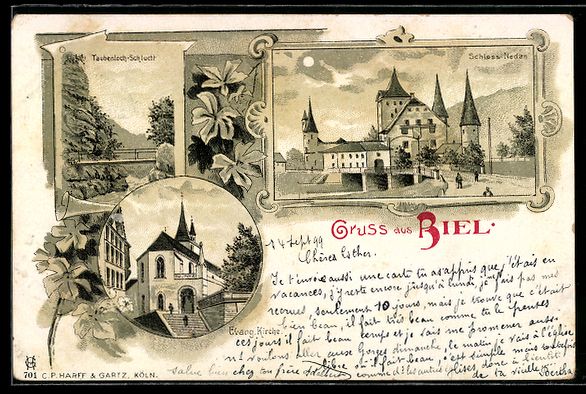 Taubenloch-Schlucht
Schloss-Nedan
Gruss aus BIEL.
Evang. Kirche.
14 Sept 99
Chères Esther.
Je t'envoie aussi une carte tu as appris que j'étais en
vacances, j'y reste encore jusqu'à lundi, je n'ai pas mes
recrues, seulement 10 jours, mais je trouve que c'était
bien beau, il fait très beau comme tu le penses
ces jours il fait beau temps et je vais me promener aussi
ns voulons aller aux Gorges dimanche, le matin je vais à l'église
libre où il fait beau, c'est simple mais
comme d'les autres églises, donc à bientôt
salue bien chez ton frère
de ta vieille
Bertha
701 C.P. HARFF & GARTZ, KÖLN.